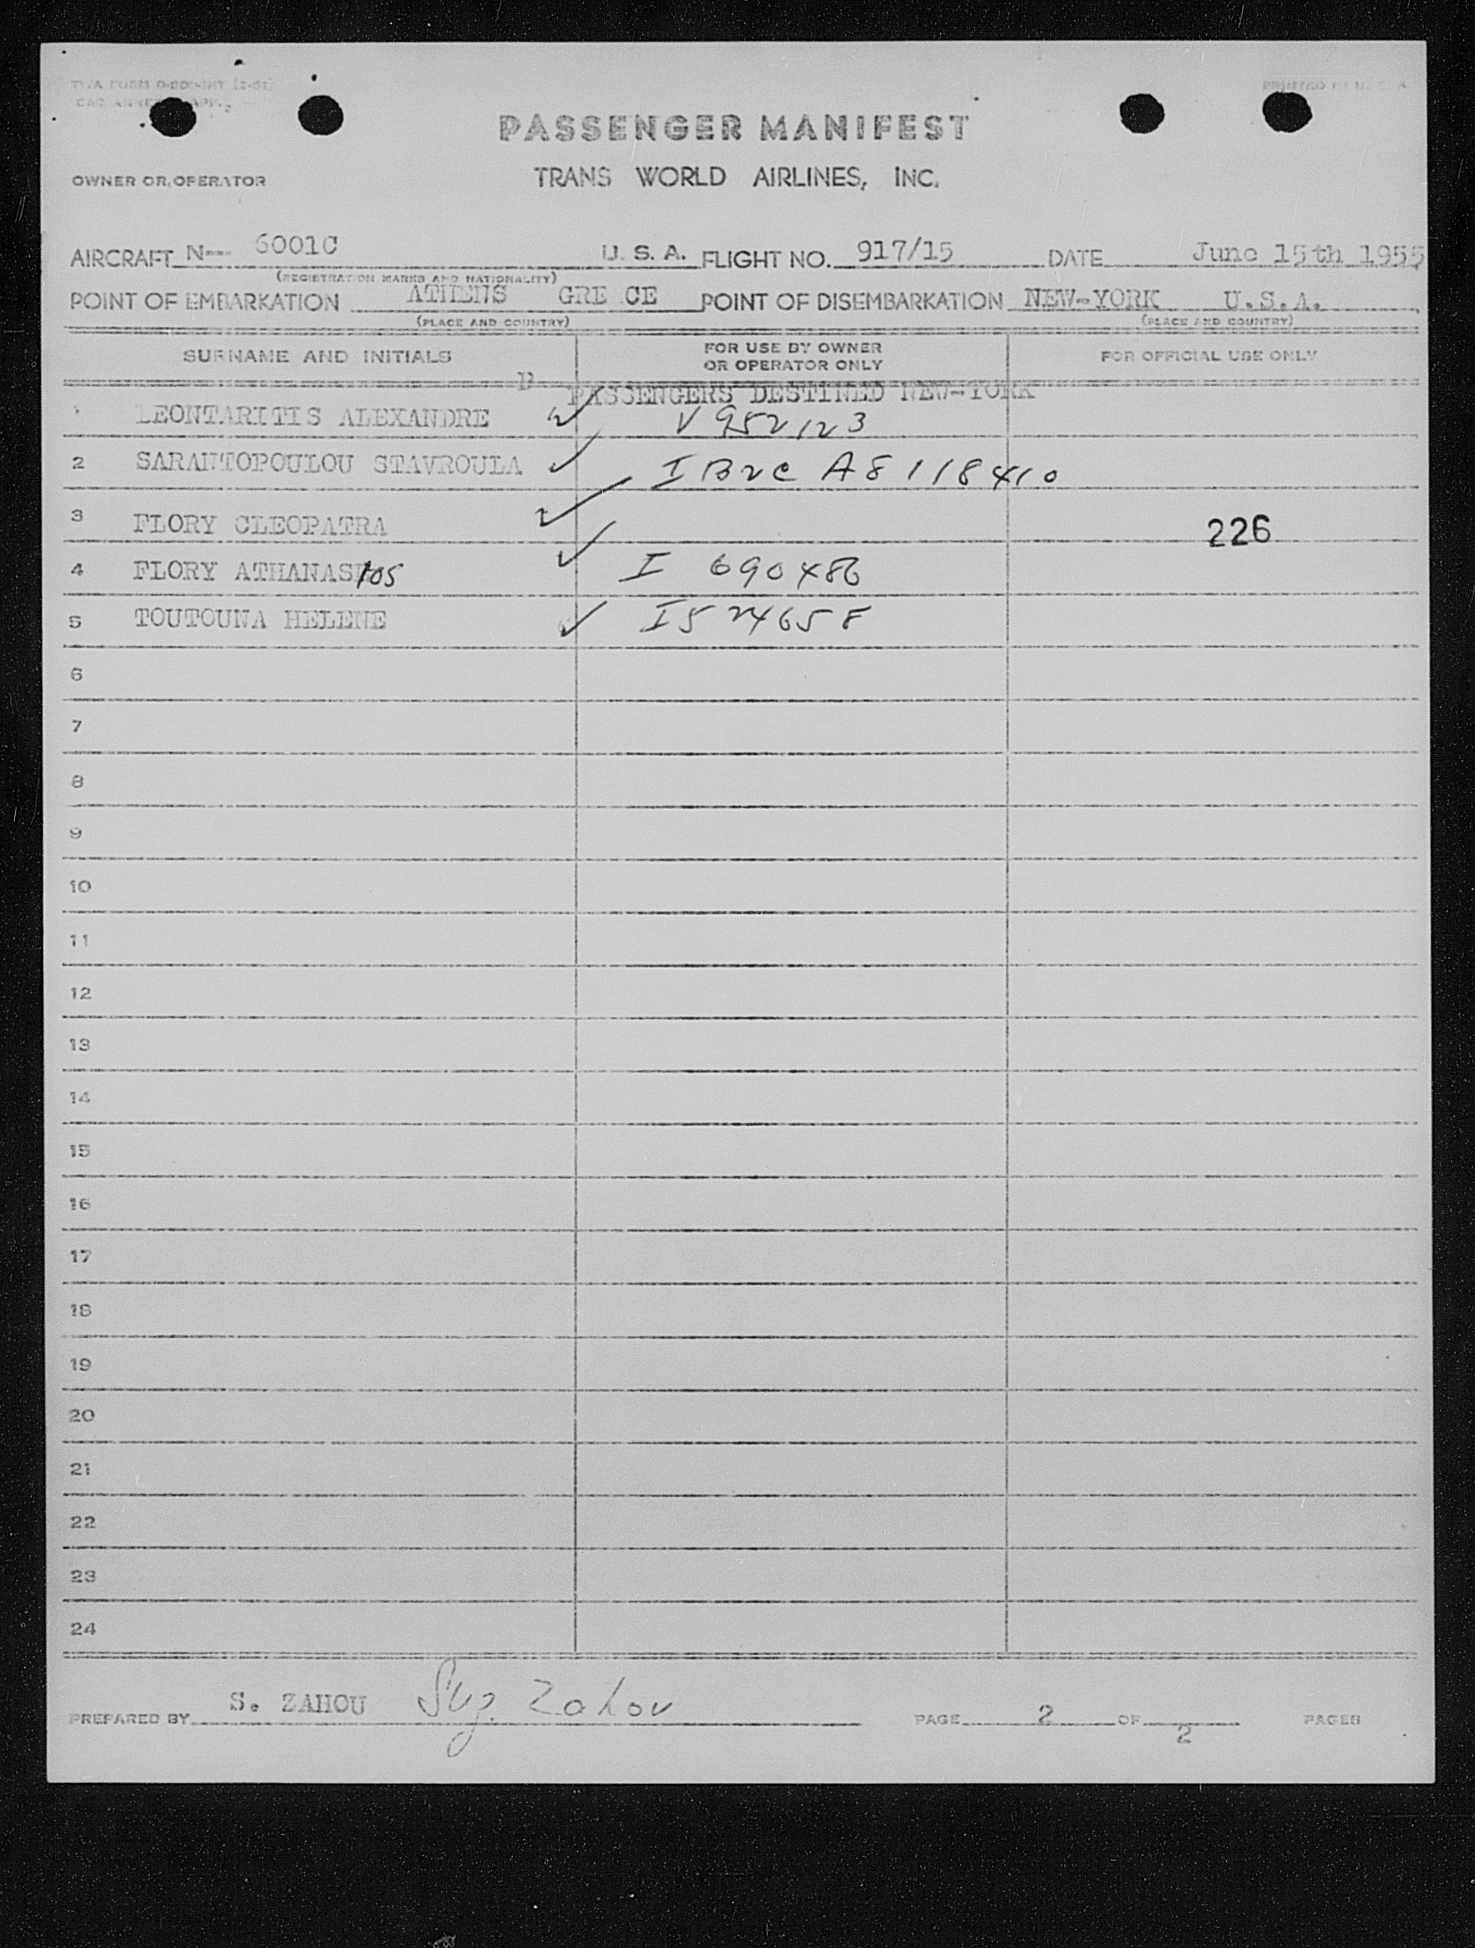 TWA FORM
PRINTED IN U. S. A.
PASSENGER MANIFEST
OWNER OR OPERATOR
TRANS WORLD AIRLINES, INC.
AIRCRAFT N--- 6001C U. S. A. FLIGHT NO. 917/15 DATE June 15th 1955
(REGISTRATION MARKS AND NATIONALITY)
POINT OF EMBARKATION ATHENS GRE CE POINT OF DISEMBARKATION NEW-YORK U.S.A.
(PLACE AND COUNTRY) (PLACE AND COUNTRY)
SURNAME AND INITIALS FOR USE BY OWNER OR OPERATOR ONLY FOR OFFICIAL USE ONLY
P PASSENGERS DESTINED NEW-YORK
1 LEONTARITIS ALEXANDRE V 952123
2 SARANTOPOULOU STAVROULA I B2C A8 118410
3 FLORY CLEOPATRA 226
4 FLORY ATHANASIOS I 690486
5 TOUTOUNA HELENE I524658
6
7
8
9
10
11
12
13
14
15
16
17
18
19
20
21
22
23
24
PREPARED BY S. ZAHOU PAGE 2 OF 2 PAGES